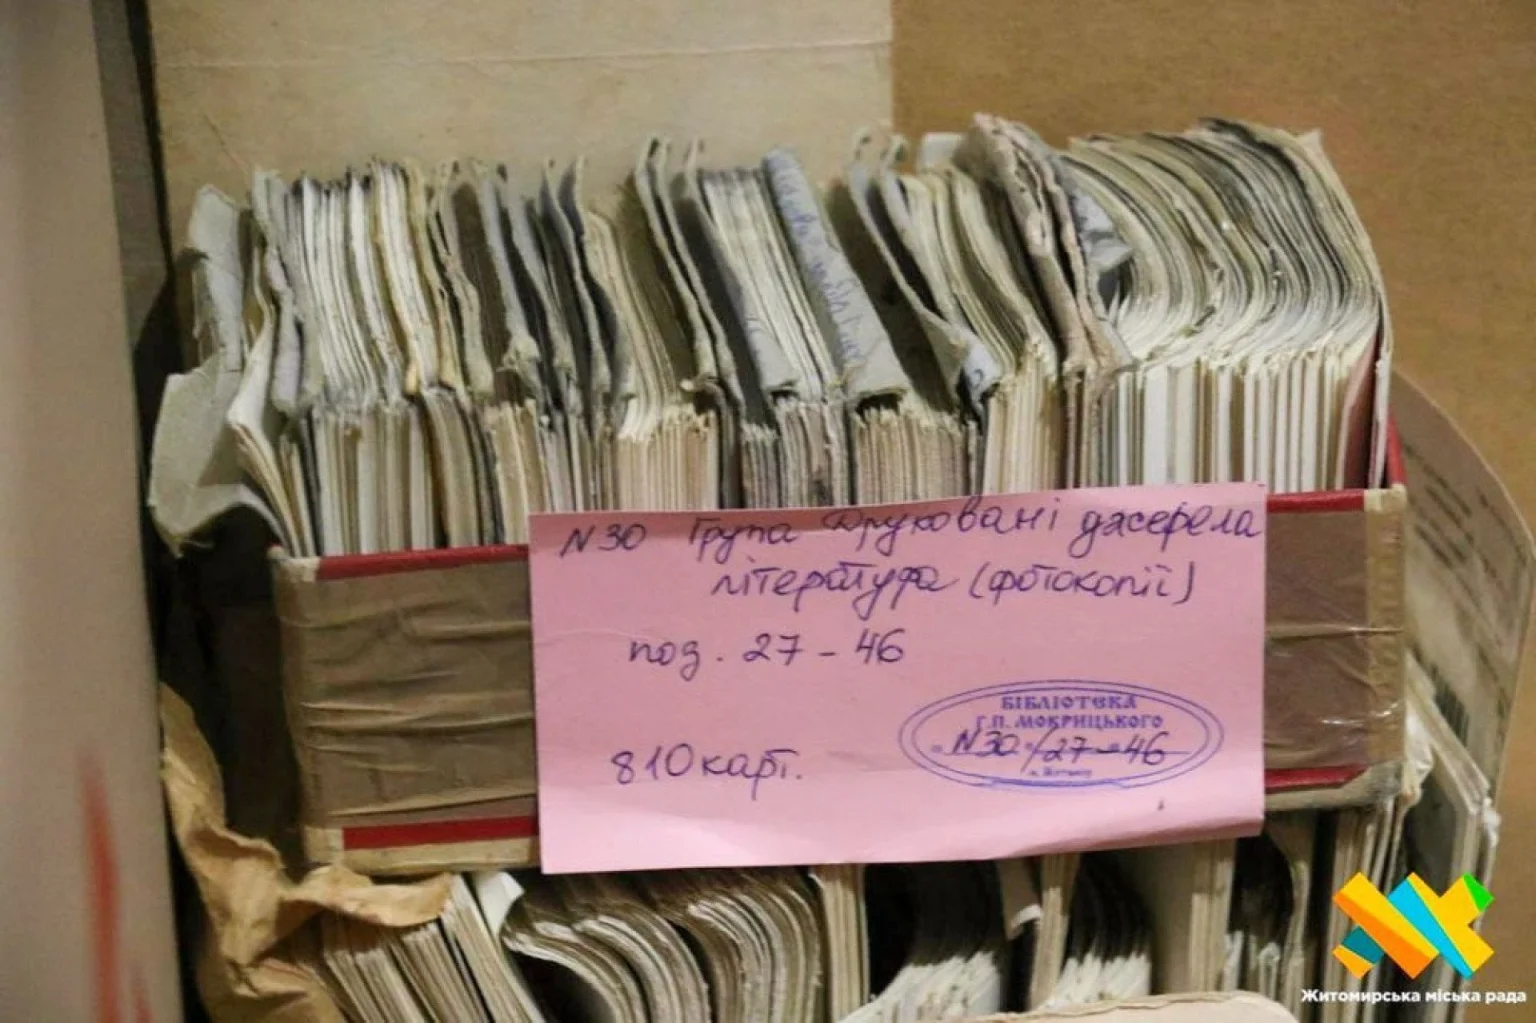 N30 Група Друковані джерела
література (фотокопії)
поз. 27 – 46
810 карт.
БІБЛІОТЕКА
Г.П. МОКРИЦЬКОГО
N30 / 27 – 46
м. Житомир
Житомирська міська рада